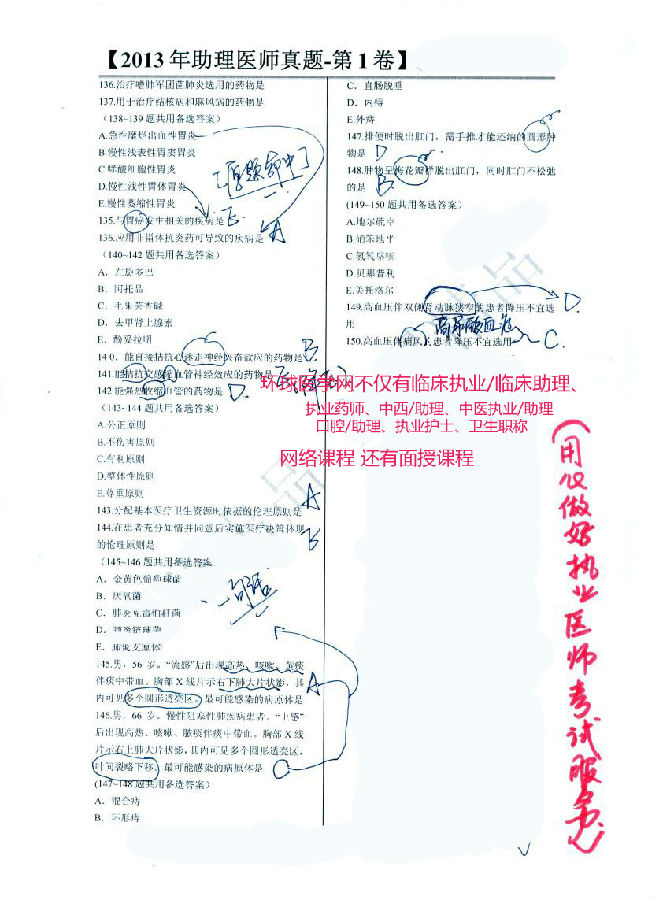 【2013年助理医师真题-第1卷】
136.治疗嗜肺军团菌肺炎选用的药物是
137.用于治疗结核病和麻风病的药物是
(138~139题共用备选答案)
A.急性糜烂出血性胃炎
B.慢性浅表性胃窦胃炎
C嗜酸细胞性胃炎
D.慢性浅性胃体胃炎
E.慢性萎缩性胃炎
135.与胃癌发生相关的疾病是 E
136.应用非甾体抗炎药可导致的疾病是 A
[真题命中]
(140~142题共用备选答案)
A、左旋多巴
B、阿托品
C、毛果芸香碱
D、去甲肾上腺素
E、酚妥拉明
140、能直接拮抗心迷走神经兴奋效应的药物是 B
141.能拮抗交感缩血管神经效应的药物是
142能强烈收缩血管的药物是 D.
(143-144题共用备选答案)
A.公正原则
B.不伤害原则
C.有利原则
D.整体性原则
E.尊重原则
143.分配基本医疗卫生资源时依据的伦理原则是 A
144.在患者充分知情并同意后实施医疗决策体现
的伦理原则是 B
(145~146题共用备选答案
A、金黄色葡萄球菌
B、厌氧菌
C、肺炎克雷伯杆菌
D、肺炎链球菌
E、肺炎支原体
145.男,56岁。“流感”后出现高热、咳嗽、黄痰
伴痰中带血。胸部X线片示右下肺大片状影,其
内可见多个圆形透亮区。最可能感染的病原体是 A
146.男,66岁。慢性阻塞性肺疾病患者,“上感”
后出现高热、咳嗽、脓痰伴痰中带血。胸部X线
片示右上肺大片状影,其内可见多个圆形透亮区,
叶间裂略下移。最可能感染的病原体是
(147~148题共用备选答案)
A、混合痔
B、环形痔
C、直肠脱垂
D、内痔
E外痔
147.排便时脱出肛门,需手推才能还纳的圆形肿
物是 D
148.肿物呈梅花瓣样脱出肛门,同时肛门不松弛
的是 B
(149~150题共用备选答案)
A.地尔硫卓
B硝苯地平
C氢氯噻嗪
D贝那普利
E.美托洛尔
149.高血压伴双侧肾动脉狭窄的患者降压不宜选
用 D.
高尿酸血症
150.高血压伴痛风的患者降压不宜选用 C.
环球医学网不仅有临床执业/临床助理、
执业药师、中西/助理、中医执业/助理
口腔/助理、执业护士、卫生职称
网络课程 还有面授课程
(用心做好执业医师考试服务)